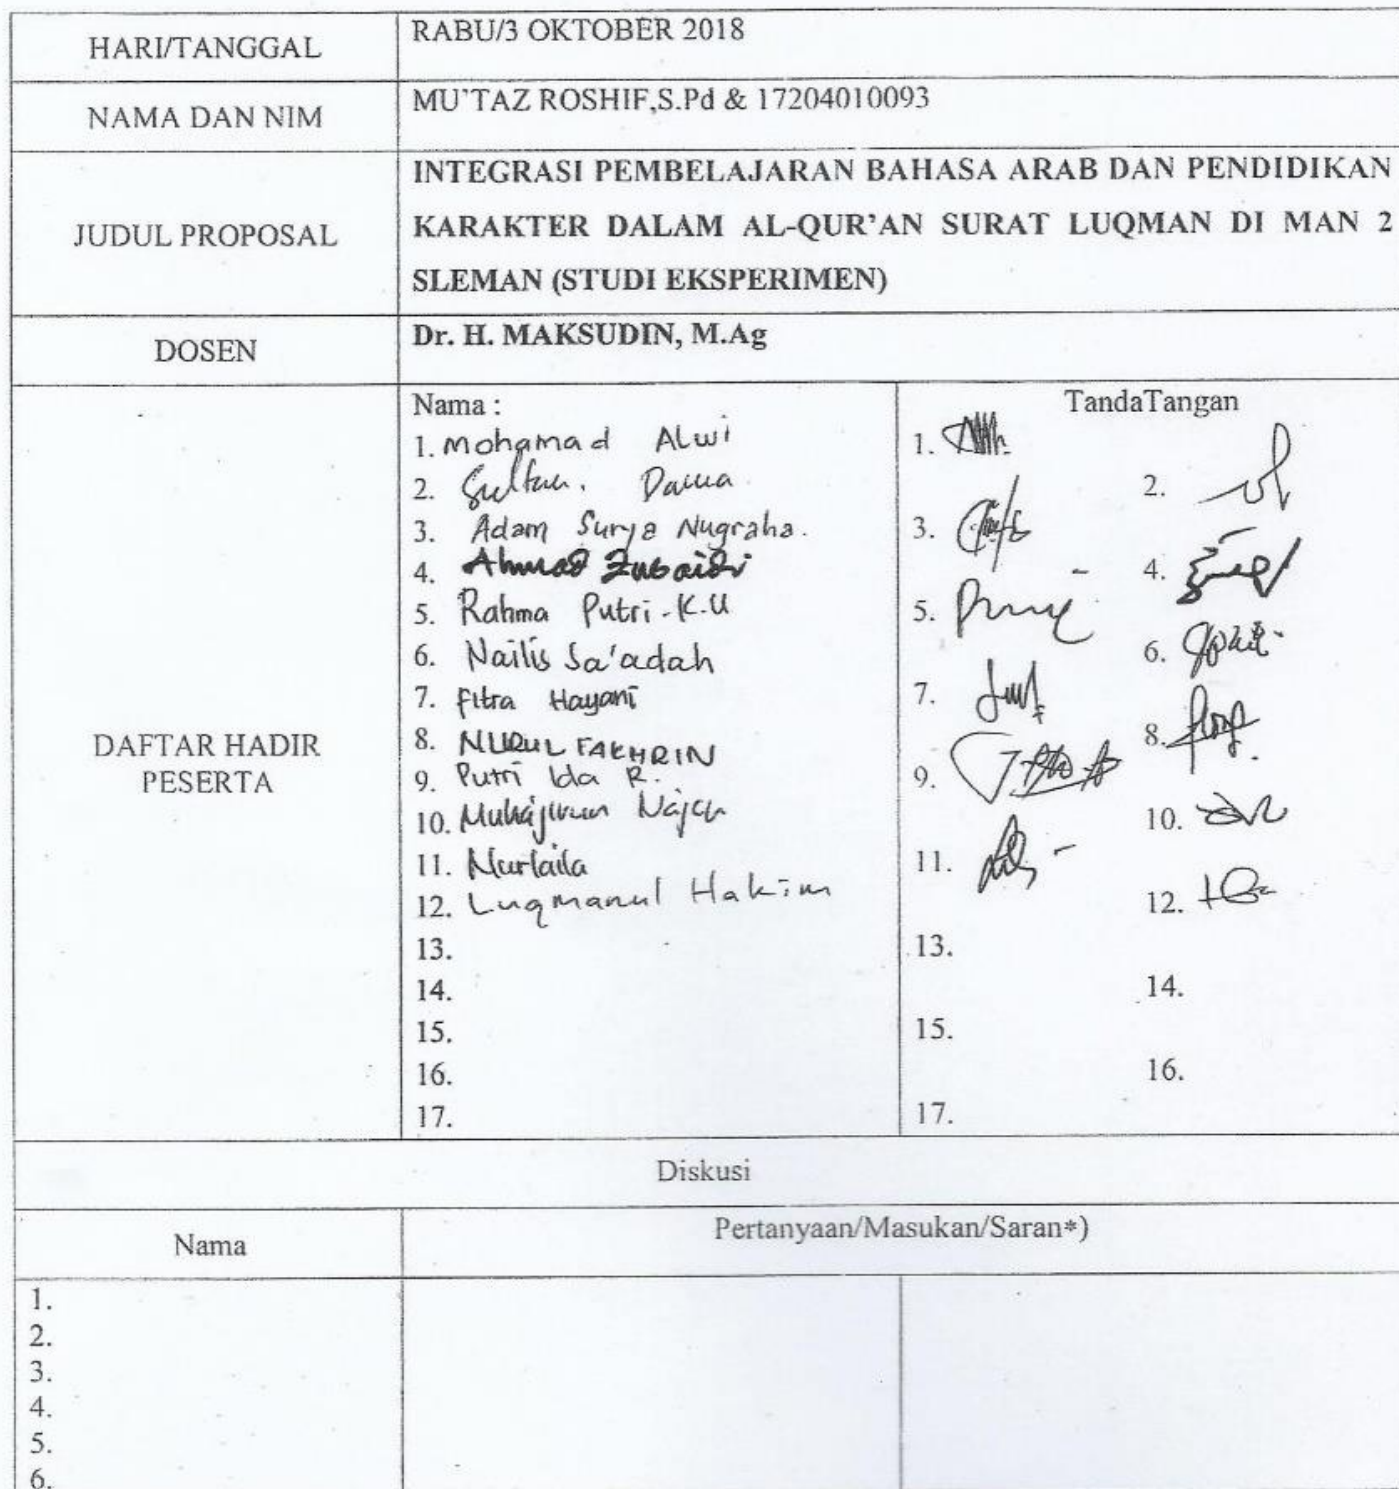 HARI/TANGGAL
RABU/3 OKTOBER 2018
NAMA DAN NIM
MU'TAZ ROSHIF,S.Pd & 17204010093
JUDUL PROPOSAL
INTEGRASI PEMBELAJARAN BAHASA ARAB DAN PENDIDIKAN
KARAKTER DALAM AL-QUR'AN SURAT LUQMAN DI MAN 2
SLEMAN (STUDI EKSPERIMEN)
DOSEN
Dr. H. MAKSUDIN, M.Ag
DAFTAR HADIR
PESERTA
Nama :
1. Mohamad Alwi
2. Sultan.
3. Adam Surya Nugraha.
4. Ahmad Zubaidi
5. Rahma Putri.K.U
6. Nailis Sa'adah
7. Fitra Hayani
8. NURUL FAKHRIN
9. Putri Ida R.
10.
11. Nurlaila
12. Luqmanul Hakim
13.
14.
15.
16.
17.
TandaTangan
1.
2.
3.
4.
5.
6.
7.
8.
9.
10.
11.
12.
13.
14.
15.
16.
17.
Diskusi
Nama
Pertanyaan/Masukan/Saran*)
1.
2.
3.
4.
5.
6.